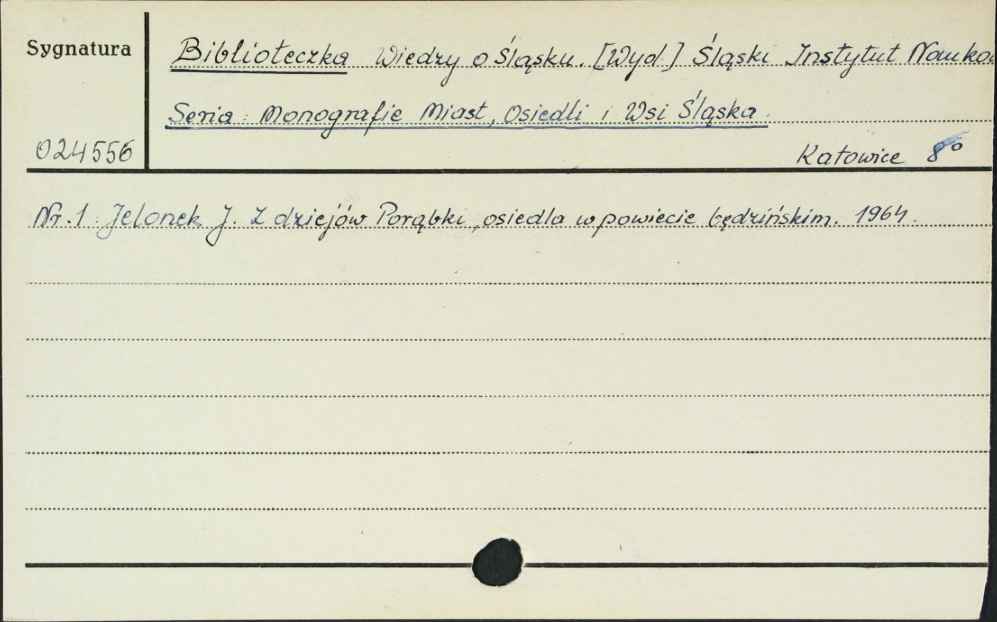 Sygnatura
Biblioteczka Wiedzy o Śląsku. [Wyd] Śląski Instytut Nauko
Seria: Monografie Miast, Osiedli i Wsi Śląska.
024556
Katowice 8°
Nr.1: Jelonek J. Z dziejów Porąbki, osiedla w powiecie będzińskim. 1964.